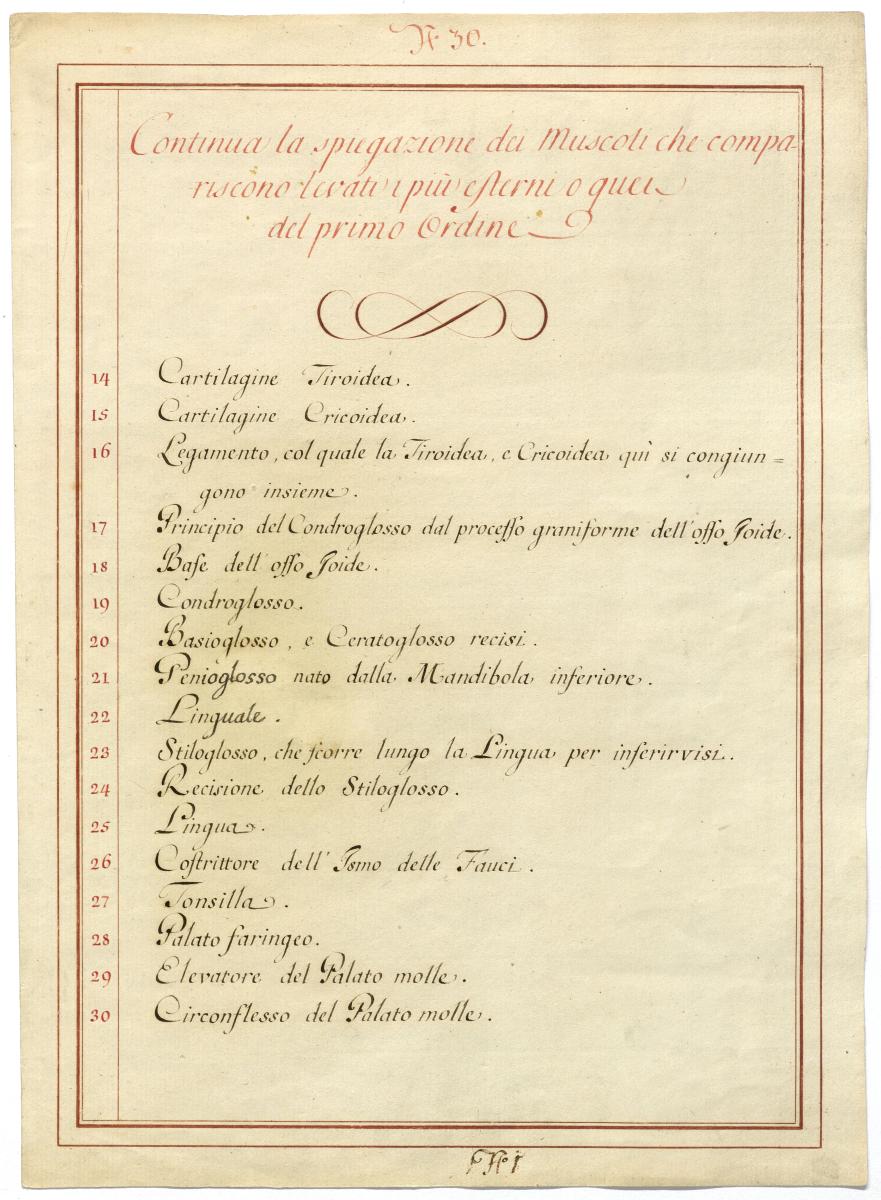 N. 30.
Continua la spiegazione dei Muscoli che compa-
riscono levati i più esterni o quei
del primo Ordine
14 Cartilagine Tiroidea.
15 Cartilagine Cricoidea.
16 Legamento, col quale la Tiroidea, e Cricoidea quì si congiun=
gono insieme.
17 Principio del Condroglosso dal processo graniforme dell'osso Joide.
18 Base dell'osso Joide.
19 Condroglosso.
20 Basioglosso, e Ceratoglosso recisi.
21 Genioglosso nato dalla Mandibola inferiore.
22 Linguale.
23 Stiloglosso, che scorre lungo la Lingua per inserirvisi.
24 Recisione dello Stiloglosso.
25 Lingua.
26 Costrittore dell'Ismo delle Fauci.
27 Tonsilla.
28 Palato faringeo.
29 Elevatore del Palato molle.
30 Circonflesso del Palato molle.